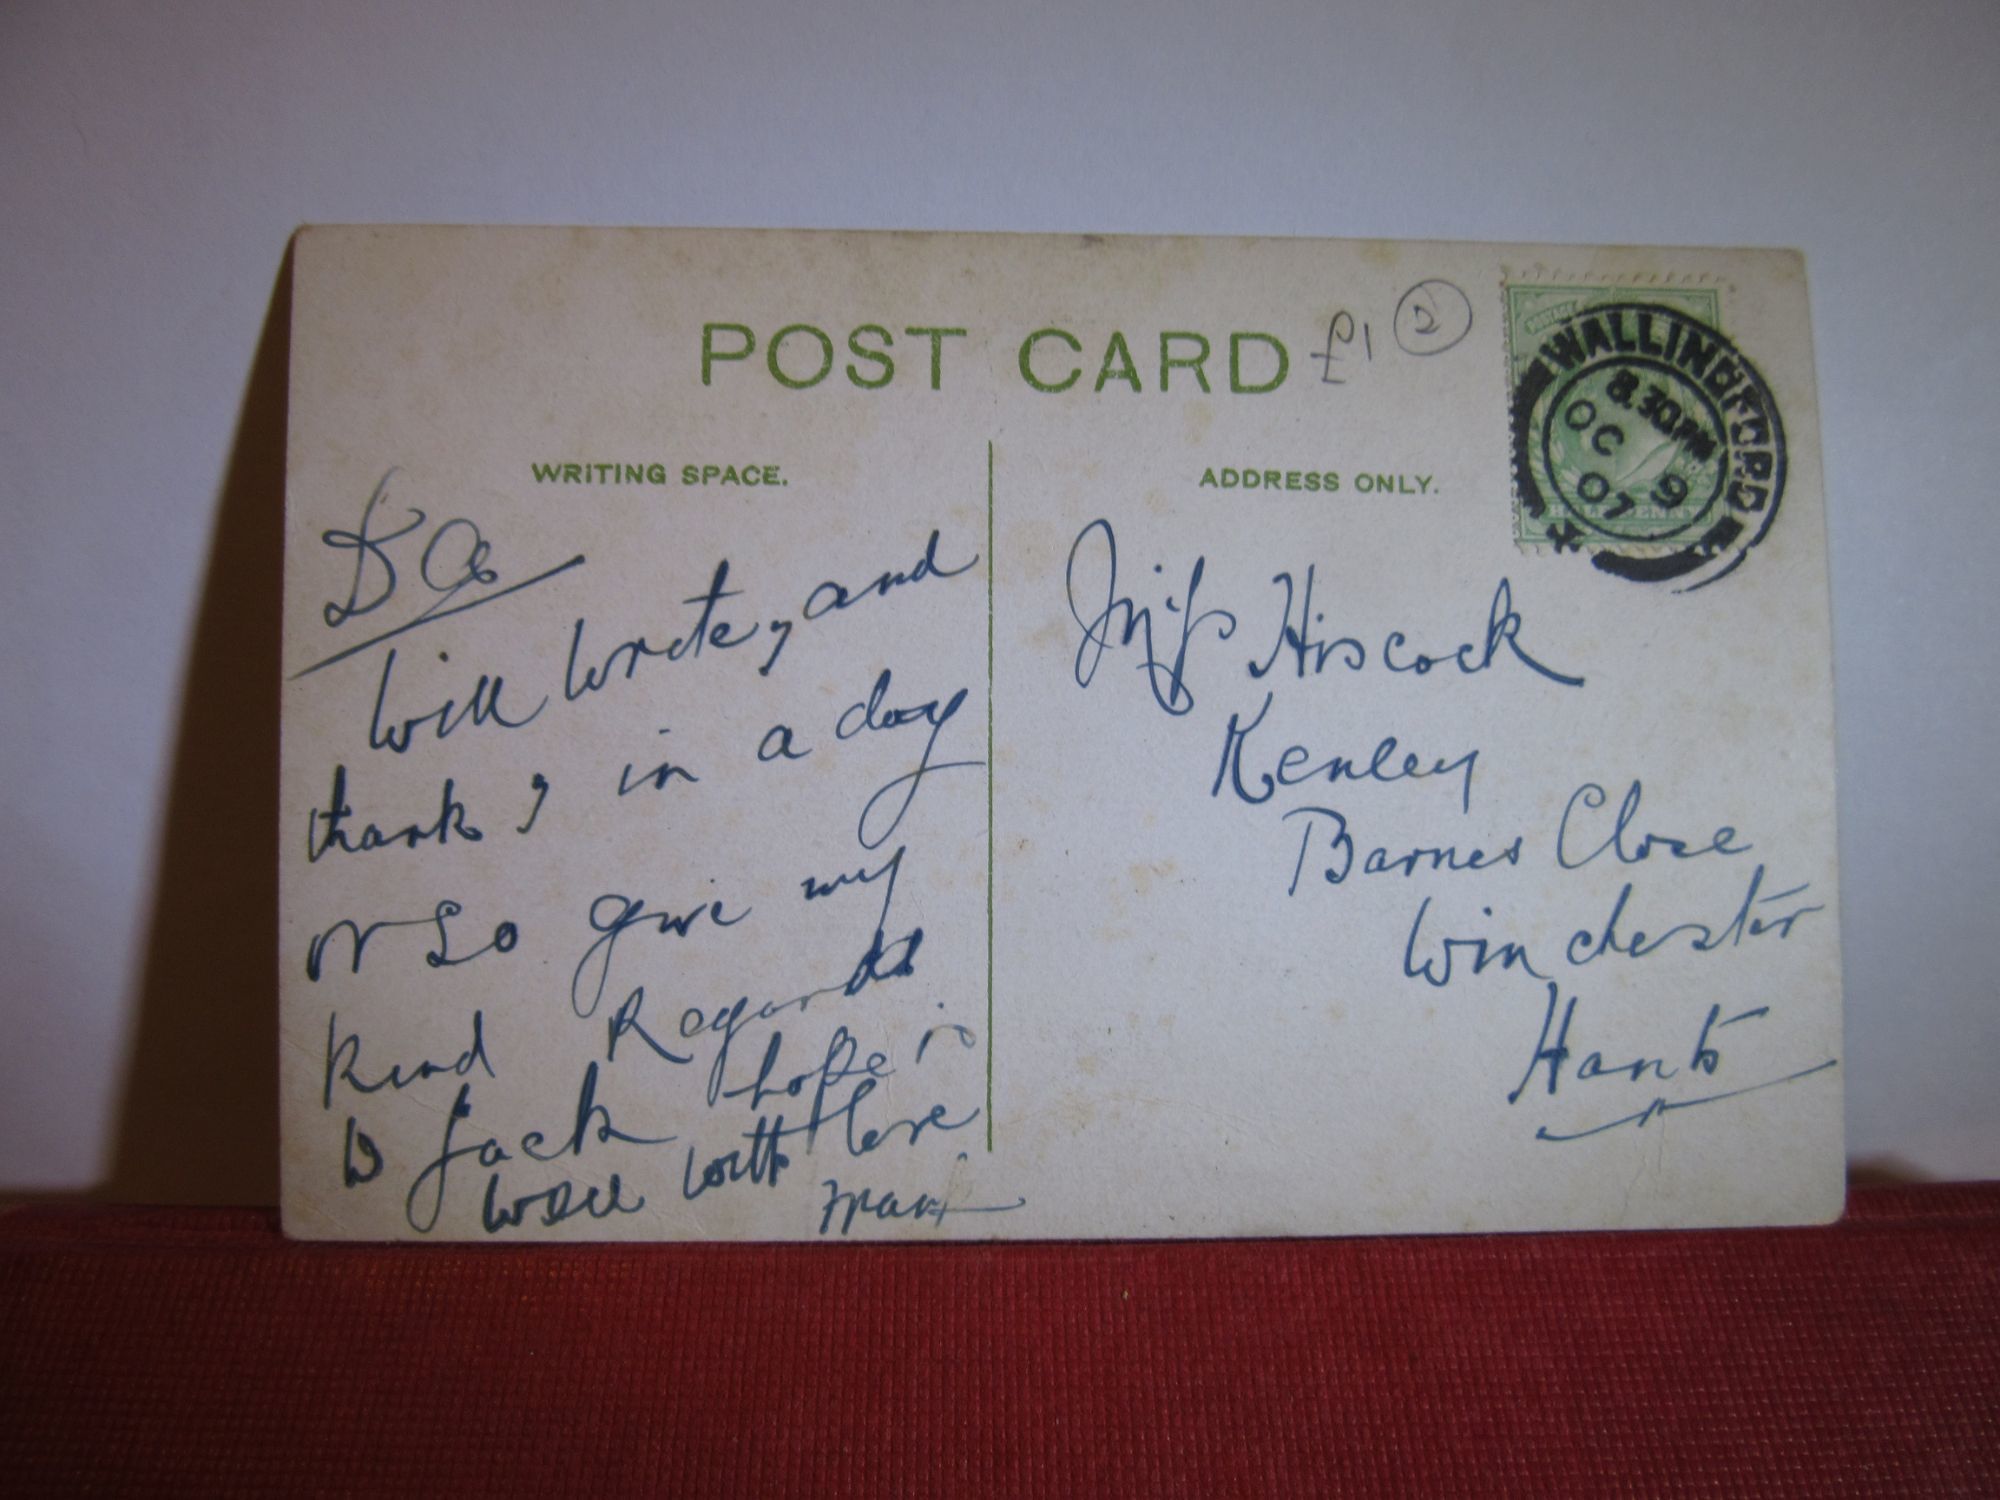 POST CARD
£1 2
WRITING SPACE.
ADDRESS ONLY.
WALLINGFORD
8.30PM
OC 9
07
HALFPENNY
D
Will write, and
thank, in a day
or so give my
kind Regards
to Jack hope is
well with love
Frank
Miss Hiscock
Kenley
Barnes Close
Winchester
Hants